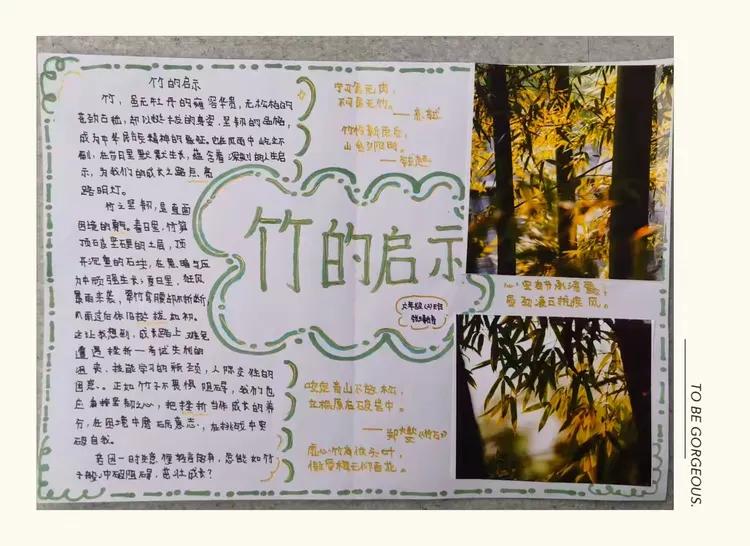 竹的启示
竹，虽无牡丹的雍容华贵，无松柏的
苍劲古拙，却以挺拔的身姿、坚韧的品格，
成为中华民族精神的象征。它在风雨中屹立不
倒，在节日里默默生长，蕴含着深刻的人生启
示，为我们的成长之路点亮
路明灯。
竹之坚韧，是直面
困境的勇气。春日里，竹笋
顶着坚硬的土层，顶
开沉重的石块，在黑暗与压
力中顽强生长；夏日里，狂风
暴雨来袭，翠竹弯腰却不折断，
风雨过后依旧挺拔如初。
这让我想到，成长路上难免
遭遇挫折——考试失利的
沮丧、技能学习的瓶颈、人际交往的
困惑。正如竹子不畏惧阻碍，我们也
应有坚韧之心，把挫折当作成长的养
分，在困境中磨砺意志，在挑战中突
破自我。
若因一时失意便掩旗息鼓，怎能如竹
子般冲破阻碍，茁壮成长？
宁可食无肉，
不可居无竹。
——苏轼
竹怜新雨后，
山爱夕阳时。
——钱起
竹的启示
六年级
心里有节承清露，
雪劲凌云抗疾风。
咬定青山不放松，
立根原在破岩中。
——郑燮《竹石》
虚心竹有低头叶，
傲骨梅无仰面花。
TO BE GORGEOUS.